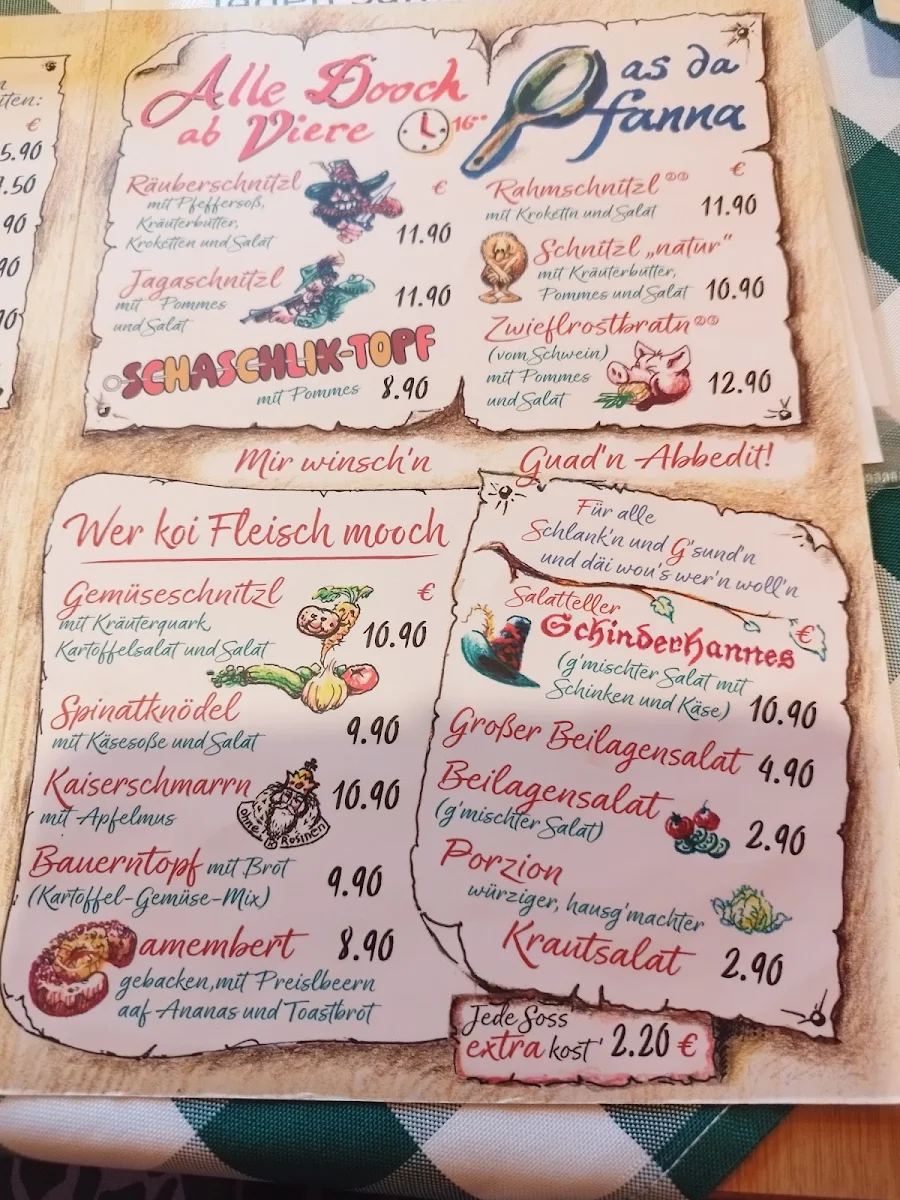 iten:
€
5.90
.50
90
90
90
Alle Dooch
ab Viere
16°°
Räuberschnitzl
€
mit Pfeffersoß,
Kräuterbutter,
Kroketten und Salat
11.90
Jagaschnitzl
mit Pommes
und Salat
11.90
SCHASCHLIK-TOPF
mit Pommes 8.90
as da
Pfanna
€
Rahmschnitzl ②③
mit Krokettn und Salat
11.90
Schnitzl „natur"
mit Kräuterbutter,
Pommes und Salat
10.90
Zwieflrostbratn ②③
(vom Schwein)
mit Pommes
und Salat
12.90
Mir winsch'n Guad'n Abbedit!
Wer koi Fleisch mooch
Gemüseschnitzl
€
mit Kräuterquark,
Kartoffelsalat und Salat
10.90
Spinatknödel
mit Käsesoße und Salat
9.90
Kaiserschmarrn
10.90
mit Apfelmus
ohne Rosinen
Bauerntopf mit Brot
(Kartoffel-Gemüse-Mix)
9.90
Camembert 8.90
gebacken, mit Preislbeern
aaf Ananas und Toastbrot
Für alle
Schlank'n und G'sund'n
und däi wou's wer'n woll'n
Salatteller
€
Schinderhannes
(g'mischter Salat mit
Schinken und Käse)
10.90
Großer Beilagensalat 4.90
Beilagensalat
(g'mischter Salat)
2.90
Porzion
würziger, hausg'machter
Krautsalat 2.90
Jede Soss
extra kost' 2.20 €